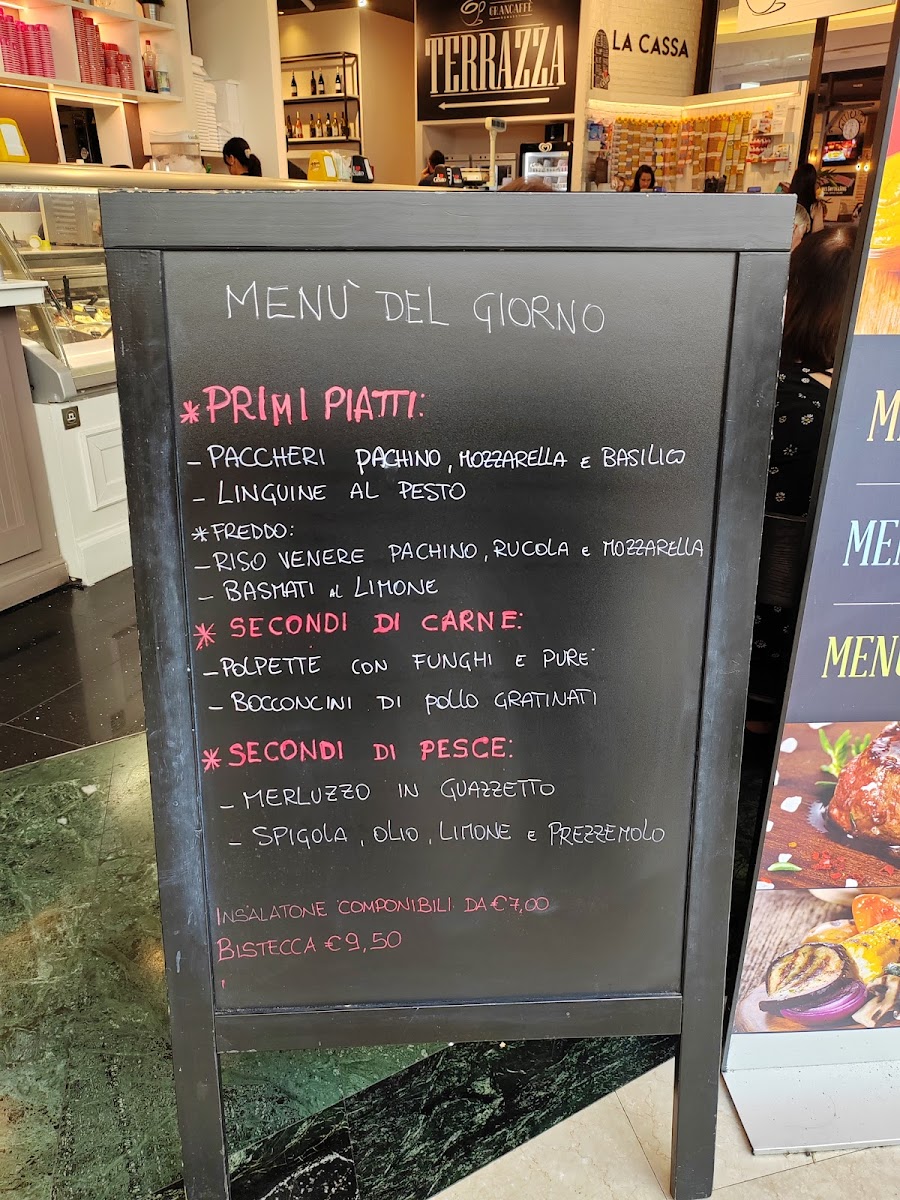 GRANCAFFÈ
TERRAZZA
LA CASSA
MENÙ DEL GIORNO
* PRIMI PIATTI:
- PACCHERI PACHINO, MOZZARELLA E BASILICO
- LINGUINE AL PESTO
* FREDDO:
- RISO VENERE PACHINO, RUCOLA E MOZZARELLA
- BASMATI al LIMONE
* SECONDI DI CARNE:
- POLPETTE CON FUNGHI E PURE'
- BOCCONCINI DI POLLO GRATINATI
* SECONDI DI PESCE:
- MERLUZZO IN GUAZZETTO
- SPIGOLA, OLIO, LIMONE E PREZZEMOLO
INSALATONE COMPONIBILI DA € 7,00
BISTECCA € 9,50